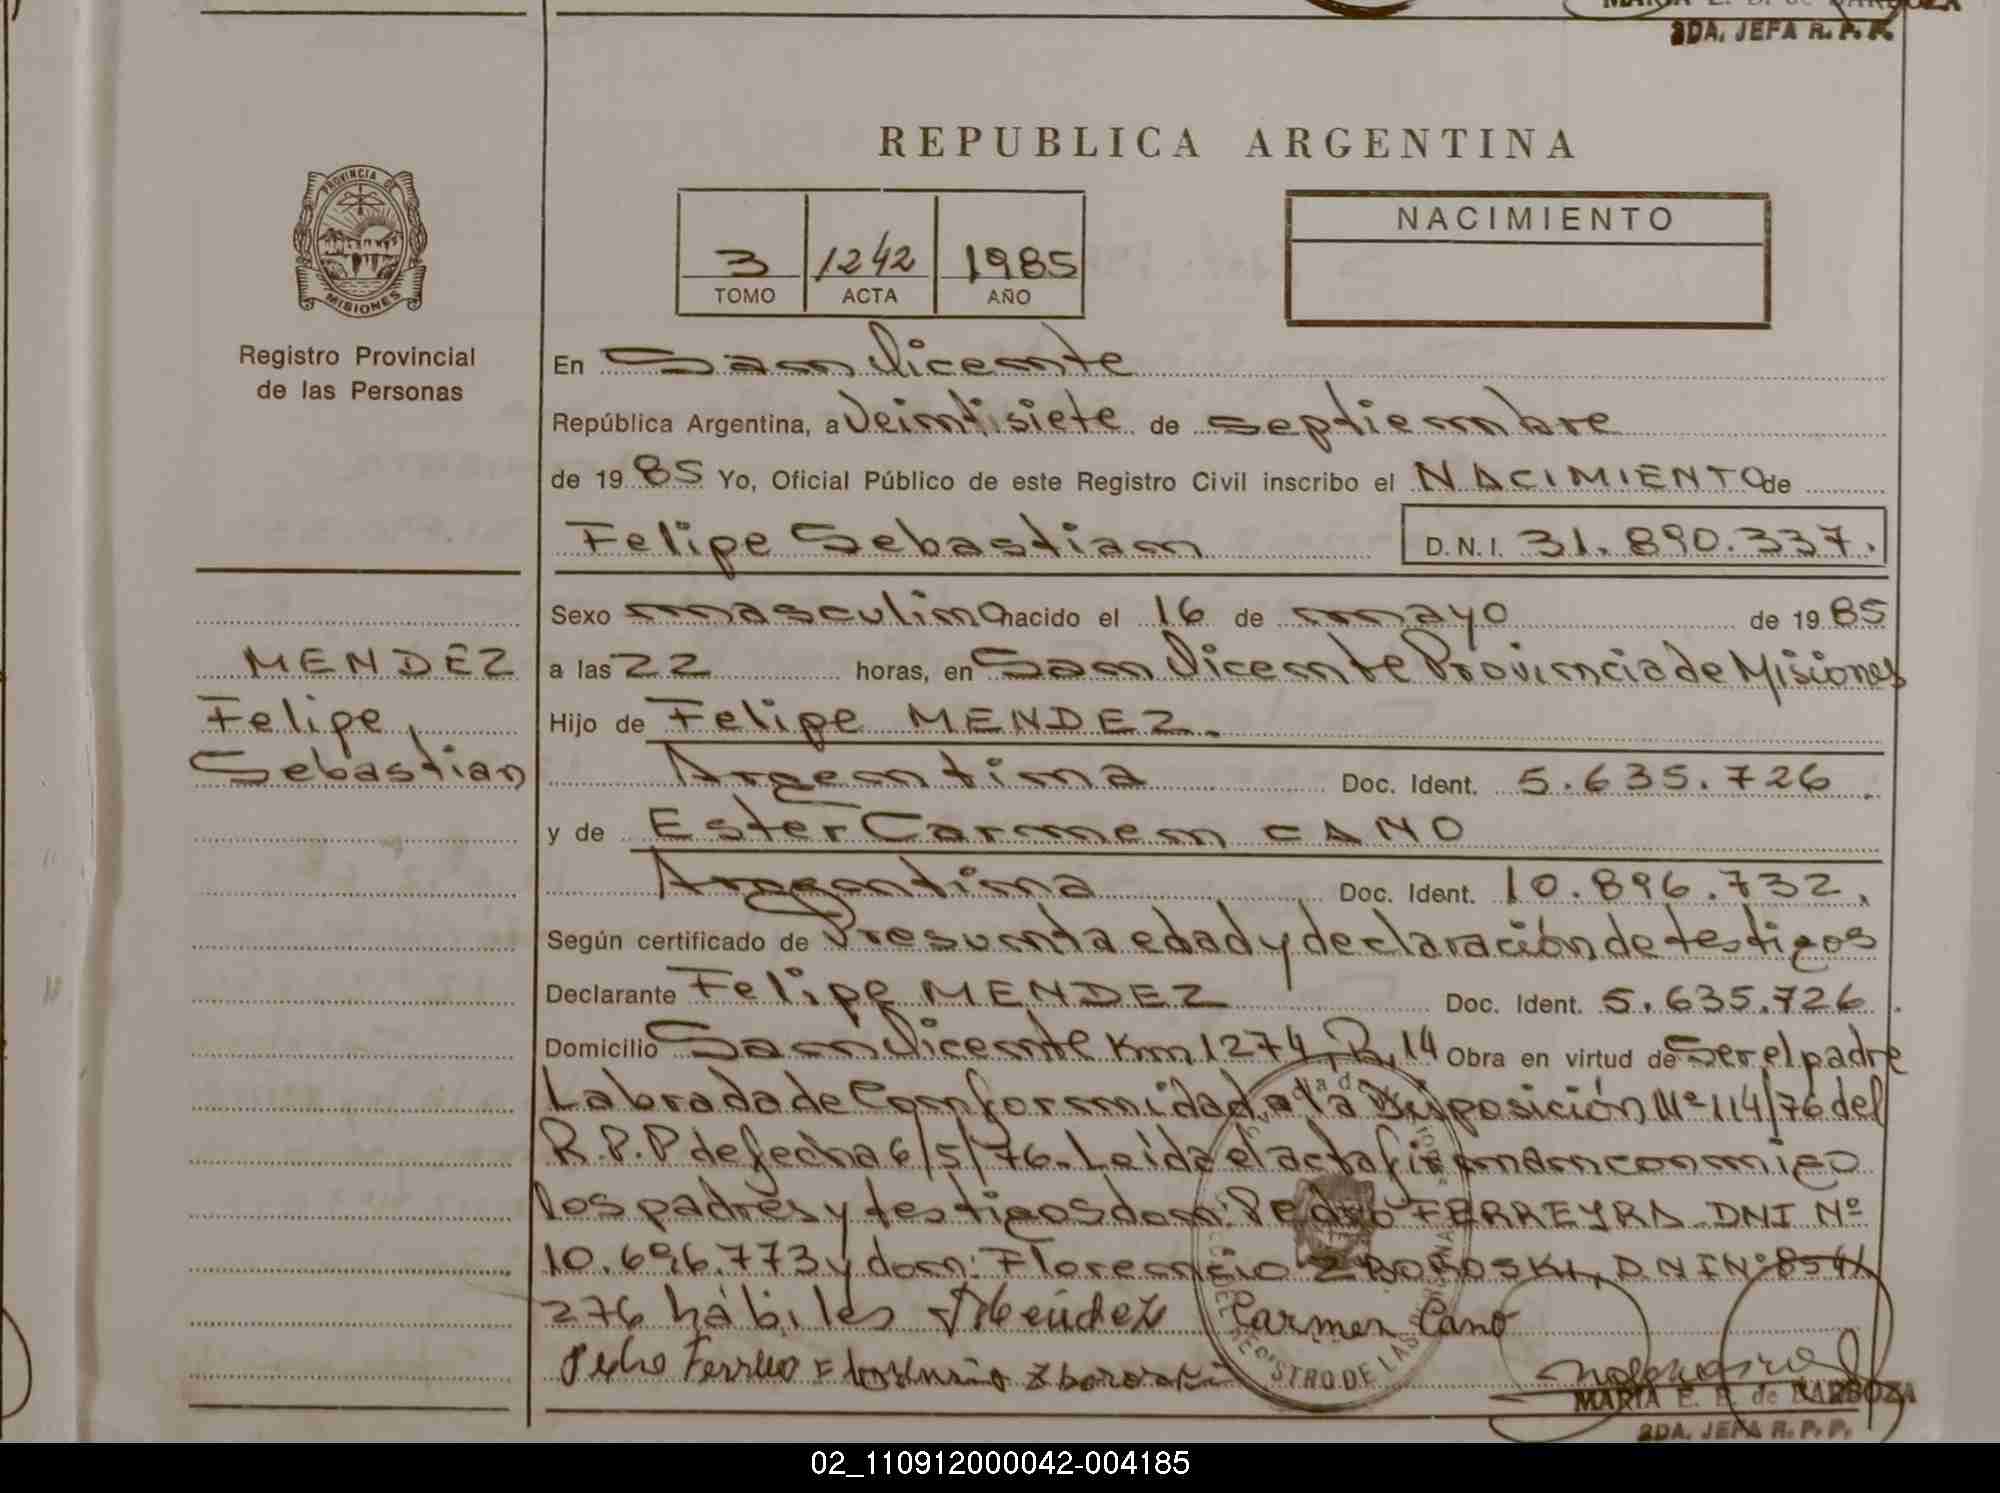 MARIA E. B. de BARBOZA
2DA. JEFA R. P. P.
REPUBLICA ARGENTINA
PROVINCIA DE
MISIONES
Registro Provincial
de las Personas
3 1242 1985
TOMO ACTA AÑO
NACIMIENTO
En San Vicente
República Argentina, a Veintisiete de septiembre
de 19 85 Yo, Oficial Público de este Registro Civil inscribo el NACIMIENTO de
Felipe Sebastian D.N.I. 31.890.337.
MENDEZ
Felipe,
Sebastian
Sexo masculino nacido el 16 de mayo de 19 85
a las 22 horas, en San Vicente Provincia de Misiones
Hijo de Felipe MENDEZ.
Argentina Doc. Ident. 5.635.726.
y de Ester Carmen CANO
Argentina Doc. Ident. 10.896.732.
Según certificado de Presunta edad y declaración de testigos
Declarante Felipe MENDEZ Doc. Ident. 5.635.726.
Domicilio San Vicente Km 1274 R. 14 Obra en virtud de Ser el padre
Labrada de Conformidad a la Disposición Nº 114/76 del
R.P.P de fecha 6/5/76.- Leida el acta firman conmigo
los padres y testigos don: Pedro FERREYRA DNI Nº
10.696.773 y don: Florencio ZBOROSKI, DNI Nº 8541
276 hábiles Mendez Carmen Cano
Pedro Ferreo Zboroski
MARIA E. B. de BARBOZA
2DA. JEFA R. P. P.
02_110912000042-004185